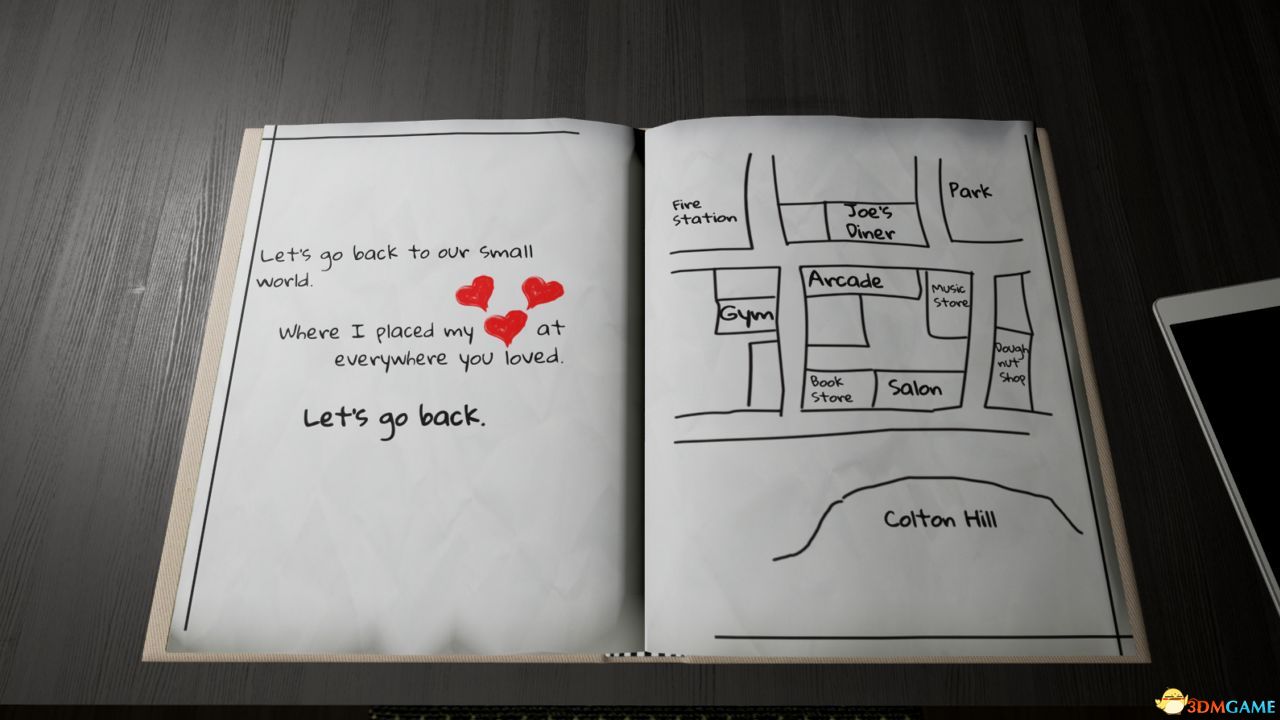 Let's go back to our small
world.
Where I placed my
at
everywhere you loved.
Let's go back.
Fire
Station
Joe's
Diner
Park
Arcade
Music
Store
Gym
Dough
nut
Shop
Book
Store
Salon
Colton Hill
3DMGAME